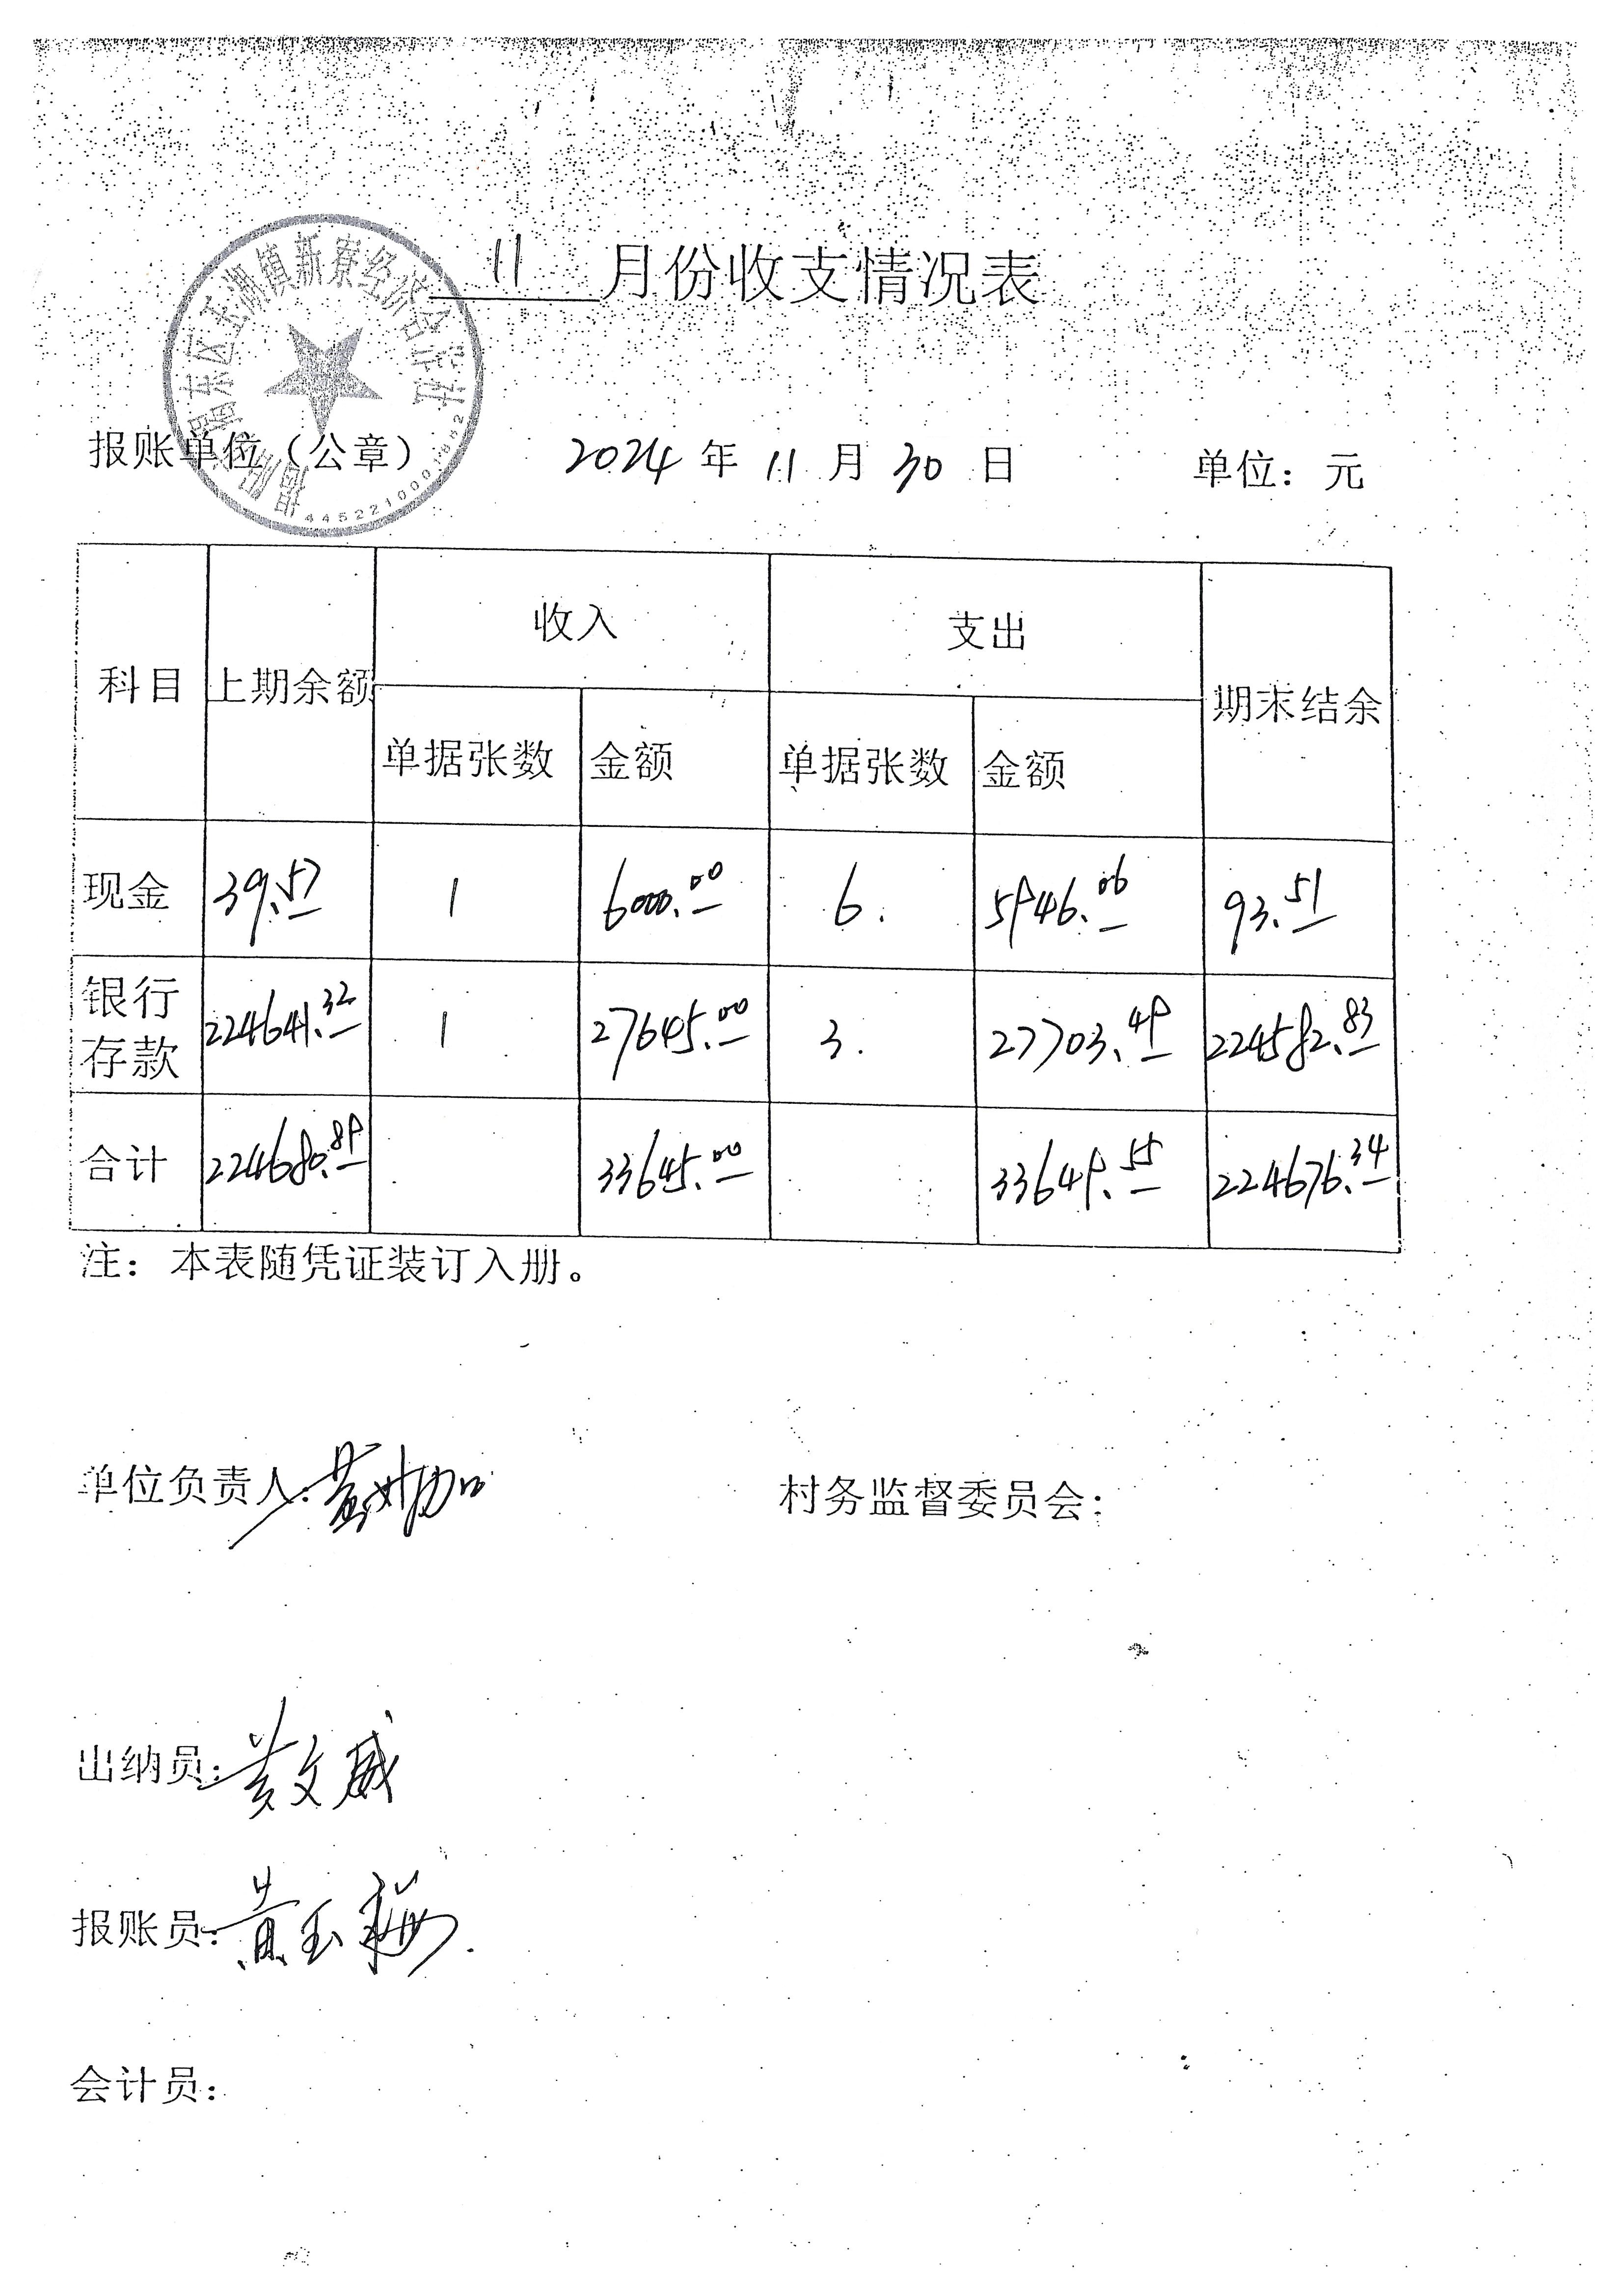 11 月份收支情况表
揭阳市揭东区玉湖镇新寮经济合作社
报账单位（公章） 2024 年 11 月 30 日 单位：元
科目 上期余额 收入 支出 期末结余
单据张数 金额 单据张数 金额
现金 39.57 1 6000.00 6. 5946.06 93.51
银行存款 224641.32 1 27645.00 3. 27703.49 224582.83
合计 224680.89 33645.00 33649.55 224676.34
注：本表随凭证装订入册。
单位负责人： 村务监督委员会：
出纳员：黄文威
报账员：黄玉
会计员：